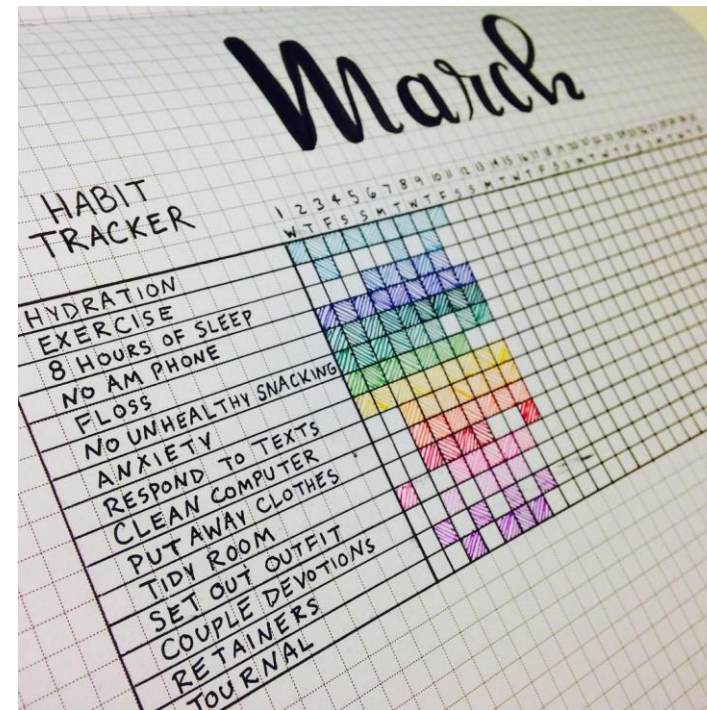 March
HABIT
TRACKER
1 2 3 4 5 6 7 8 9 10 11 12 13 14 15 16 17 18
W T F S S M T W T F S S M T W T F S
HYDRATION
EXERCISE
8 HOURS OF SLEEP
NO AM PHONE
FLOSS
NO UNHEALTHY SNACKING
ANXIETY
RESPOND TO TEXTS
CLEAN COMPUTER
PUT AWAY CLOTHES
TIDY ROOM
SET OUT OUTFIT
COUPLE DEVOTIONS
RETAINERS
JOURNAL